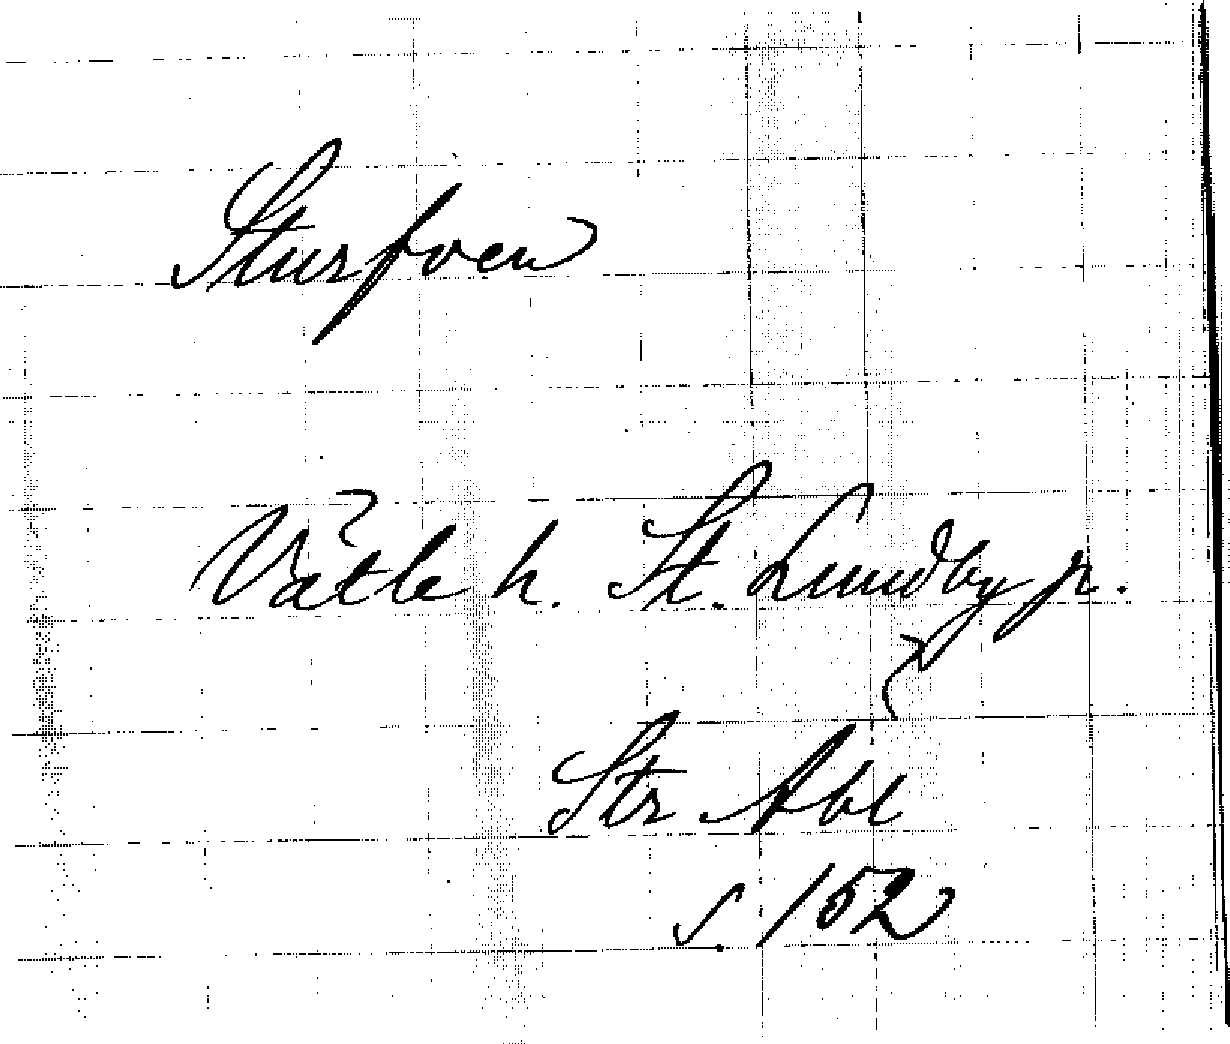 Sturfven
Vätle h. St. Lundby pr.
Str Abl
s. 152